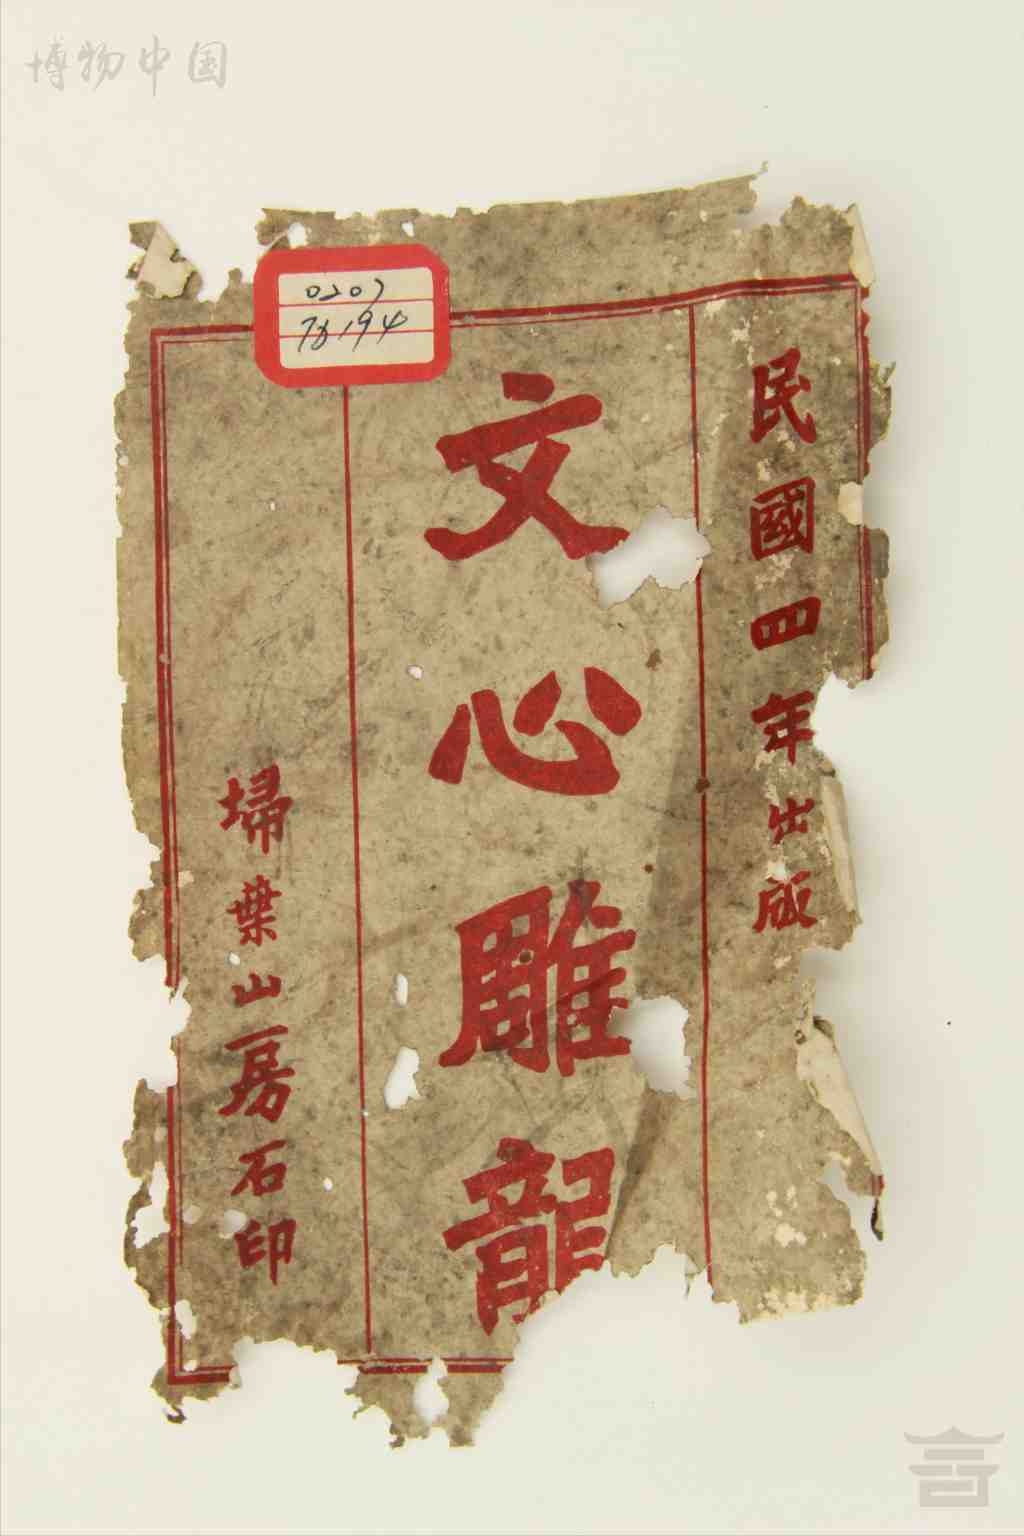 博物中国
0207
民國四年出版
文心雕龍
埽葉山房石印